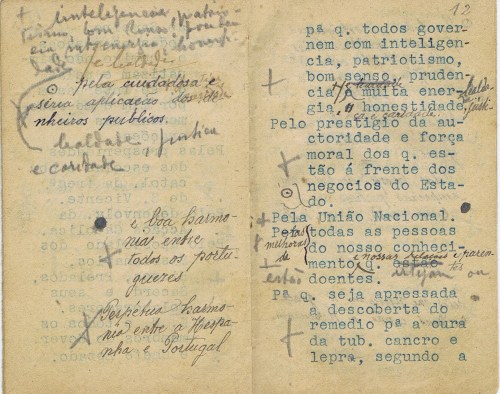 + inteligencia, patrio-
tismo, bom senso, pruden
cia, intenção, honesti
dade
e lealdade
pela cuidadosa e
séria aplicacão dos di-
nheiros publicos.
Lealdade, justica
e caridade
e boa harmo-
nia entre
todos os portu-
guezes
Perpétua harmo-
nia entre a Hespa-
nha e Portugal
12
pª q. todos gover-
nem com inteligen-
cia, patriotismo,
bom senso, pruden-
cia, muita ener-
gia, honestidade,
lealdade
justi-
e caridade
Pelo prestigio da au-
ctoridade e força
moral dos q. es-
tão á frente dos
negocios do Esta-
do.
Pela União Nacional.
Pelas todas as pessoas
melhoras do nosso conheci-
de mento q. estão
e nossas relações e paren-
tes
estão doentes. estejam ou
Pª q. seja apressada
a descoberta do
remedio pª a cura
da tub. cancro e
lepra, segundo a